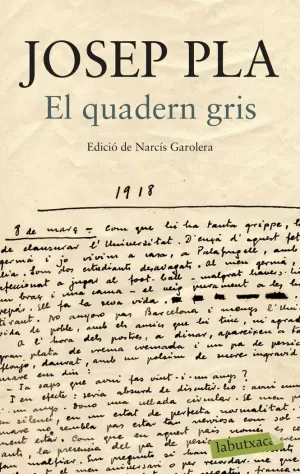 JOSEP PLA
El quadern gris
Edició de Narcís Garolera
1918
8 de març — Com que hi ha tanta grippe,
de clausurar l'Universitat. D'ençà d'aquest fet
germà i jo vivim a casa, a Palafrugell, amb
Som dos estudiants desvagats.
jugar al foot-ball — malgrat haver-hi
un braç i una cama — el veig purament a les
ell fa la seva vida.
No anyoro pas Barcelona i menys l'Uni
vida de poble, amb els amics que hi tinc, m'agrada
A l'hora dels postres, a dinar, apareixen a
gran plata de crema cremada i un pa de pessic
flonjo, daurat, amb un polsim de sucre ingràvid
mare em diu:
— Ja saps que avui fas vint-i-un anys?
En efecte: seria absurd de discutir-ho: avui
anys. Dono una ullada circular.
en silenci, en un estat de perfecta normalitat
labutxaca